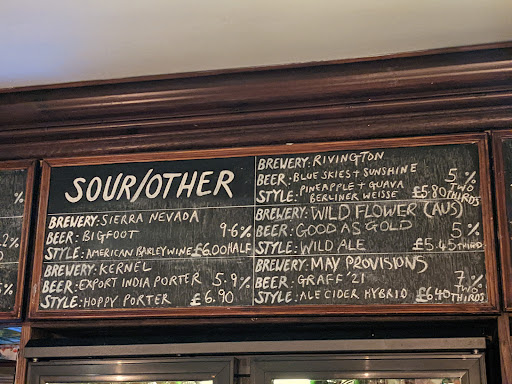 SOUR/OTHER
BREWERY: SIERRA NEVADA
BEER: BIGFOOT 9.6%
STYLE: AMERICAN BARLEYWINE £6.00 HALF
BREWERY: KERNEL
BEER: EXPORT INDIA PORTER 5.9%
STYLE: HOPPY PORTER £6.90
BREWERY: RIVINGTON
BEER: BLUE SKIES + SUNSHINE 5%
STYLE: PINEAPPLE + GUAVA BERLINER WEISSE £5.80 TWO THIRDS
BREWERY: WILD FLOWER (AUS)
BEER: GOOD AS GOLD 5%
STYLE: WILD ALE £5.45 THIRD
BREWERY: MAY PROVISIONS
BEER: GRAFF '21 7%
STYLE: ALE CIDER HYBRID £6.40 TWO THIRDS
%
2%
5%